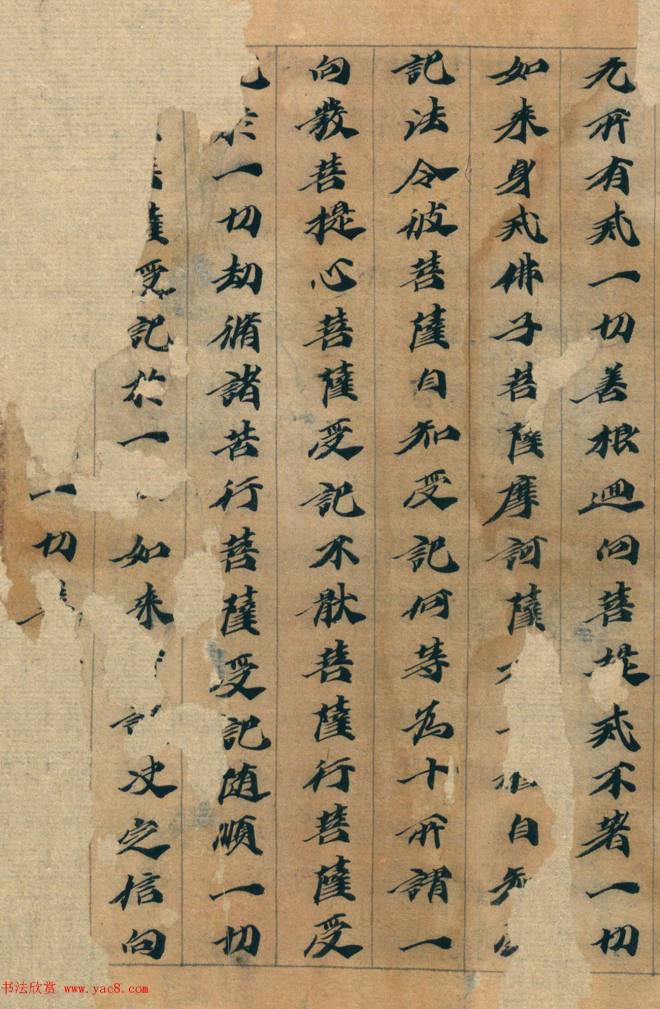 无所有戒一切善根迴向菩提戒不著一切
如来身戒佛子菩薩摩訶薩 自知
記法令彼菩薩自知受記何等為十所謂一
向發菩提心菩薩受記不猒菩薩行菩薩受
一切劫脩諸苦行菩薩受記随順一切
薩受記於一 如来 决定信向
一切
书法欣赏 www.yac8.com